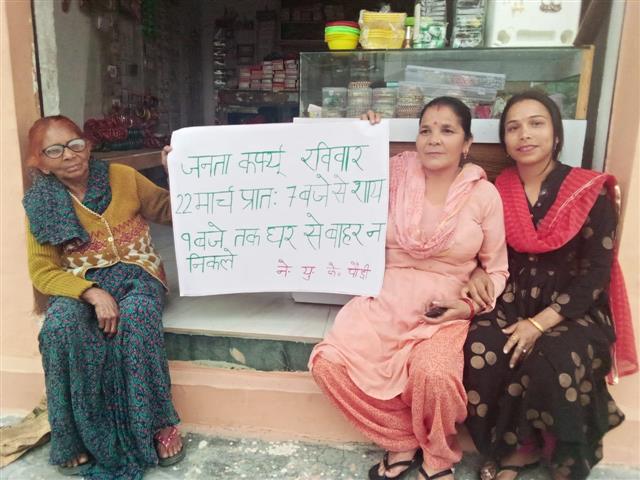 जनता कर्फ्यू रविवार
22 मार्च प्रातः 7 बजे से सांय
९ बजे तक घर से बाहर न
निकले
ने. यु. के. पौड़ी